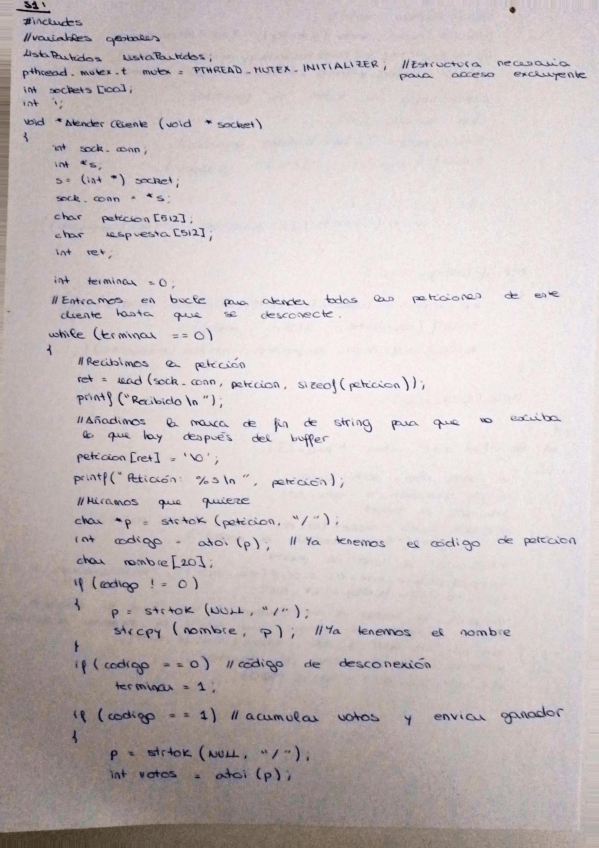 S1:
#includes
//variables globales
ListaPartidos listaPartidos;
pthread_mutex_t mutex = PTHREAD_MUTEX_INITIALIZER; //Estructura necesaria
para acceso excluyente
int sockets [100];
int i;
void *Atender Cliente (void * socket)
{
int sock_conn;
int *s;
s = (int *) socket;
sock_conn = *s;
char peticion [512];
char respuesta [512];
int ret;
int terminar = 0;
//Entramos en bucle para atender todas las peticiones de este
cliente hasta que se desconecte.
while (terminar == 0)
{
//Recibimos la petición
ret = read (sock_conn, peticion, sizeof (peticion));
printf ("Recibido \n");
//Añadimos la marca de fin de string para que no escriba
lo que hay después del buffer
peticion [ret] = '\0';
printf (" Petición: %s \n ", petición);
//Miramos que quiere
char *p = strtok (peticion, "/");
int codigo = atoi (p); // Ya tenemos el código de petición
char nombre [20];
if (codigo != 0)
{
p = strtok (NULL, "/");
strcpy (nombre, p); //Ya tenemos el nombre
}
if (codigo == 0) //código de desconexión
terminar = 1;
if (codigo == 1) // acumular votos y enviar ganador
{
p = strtok (NULL, "/");
int votos = atoi (p);